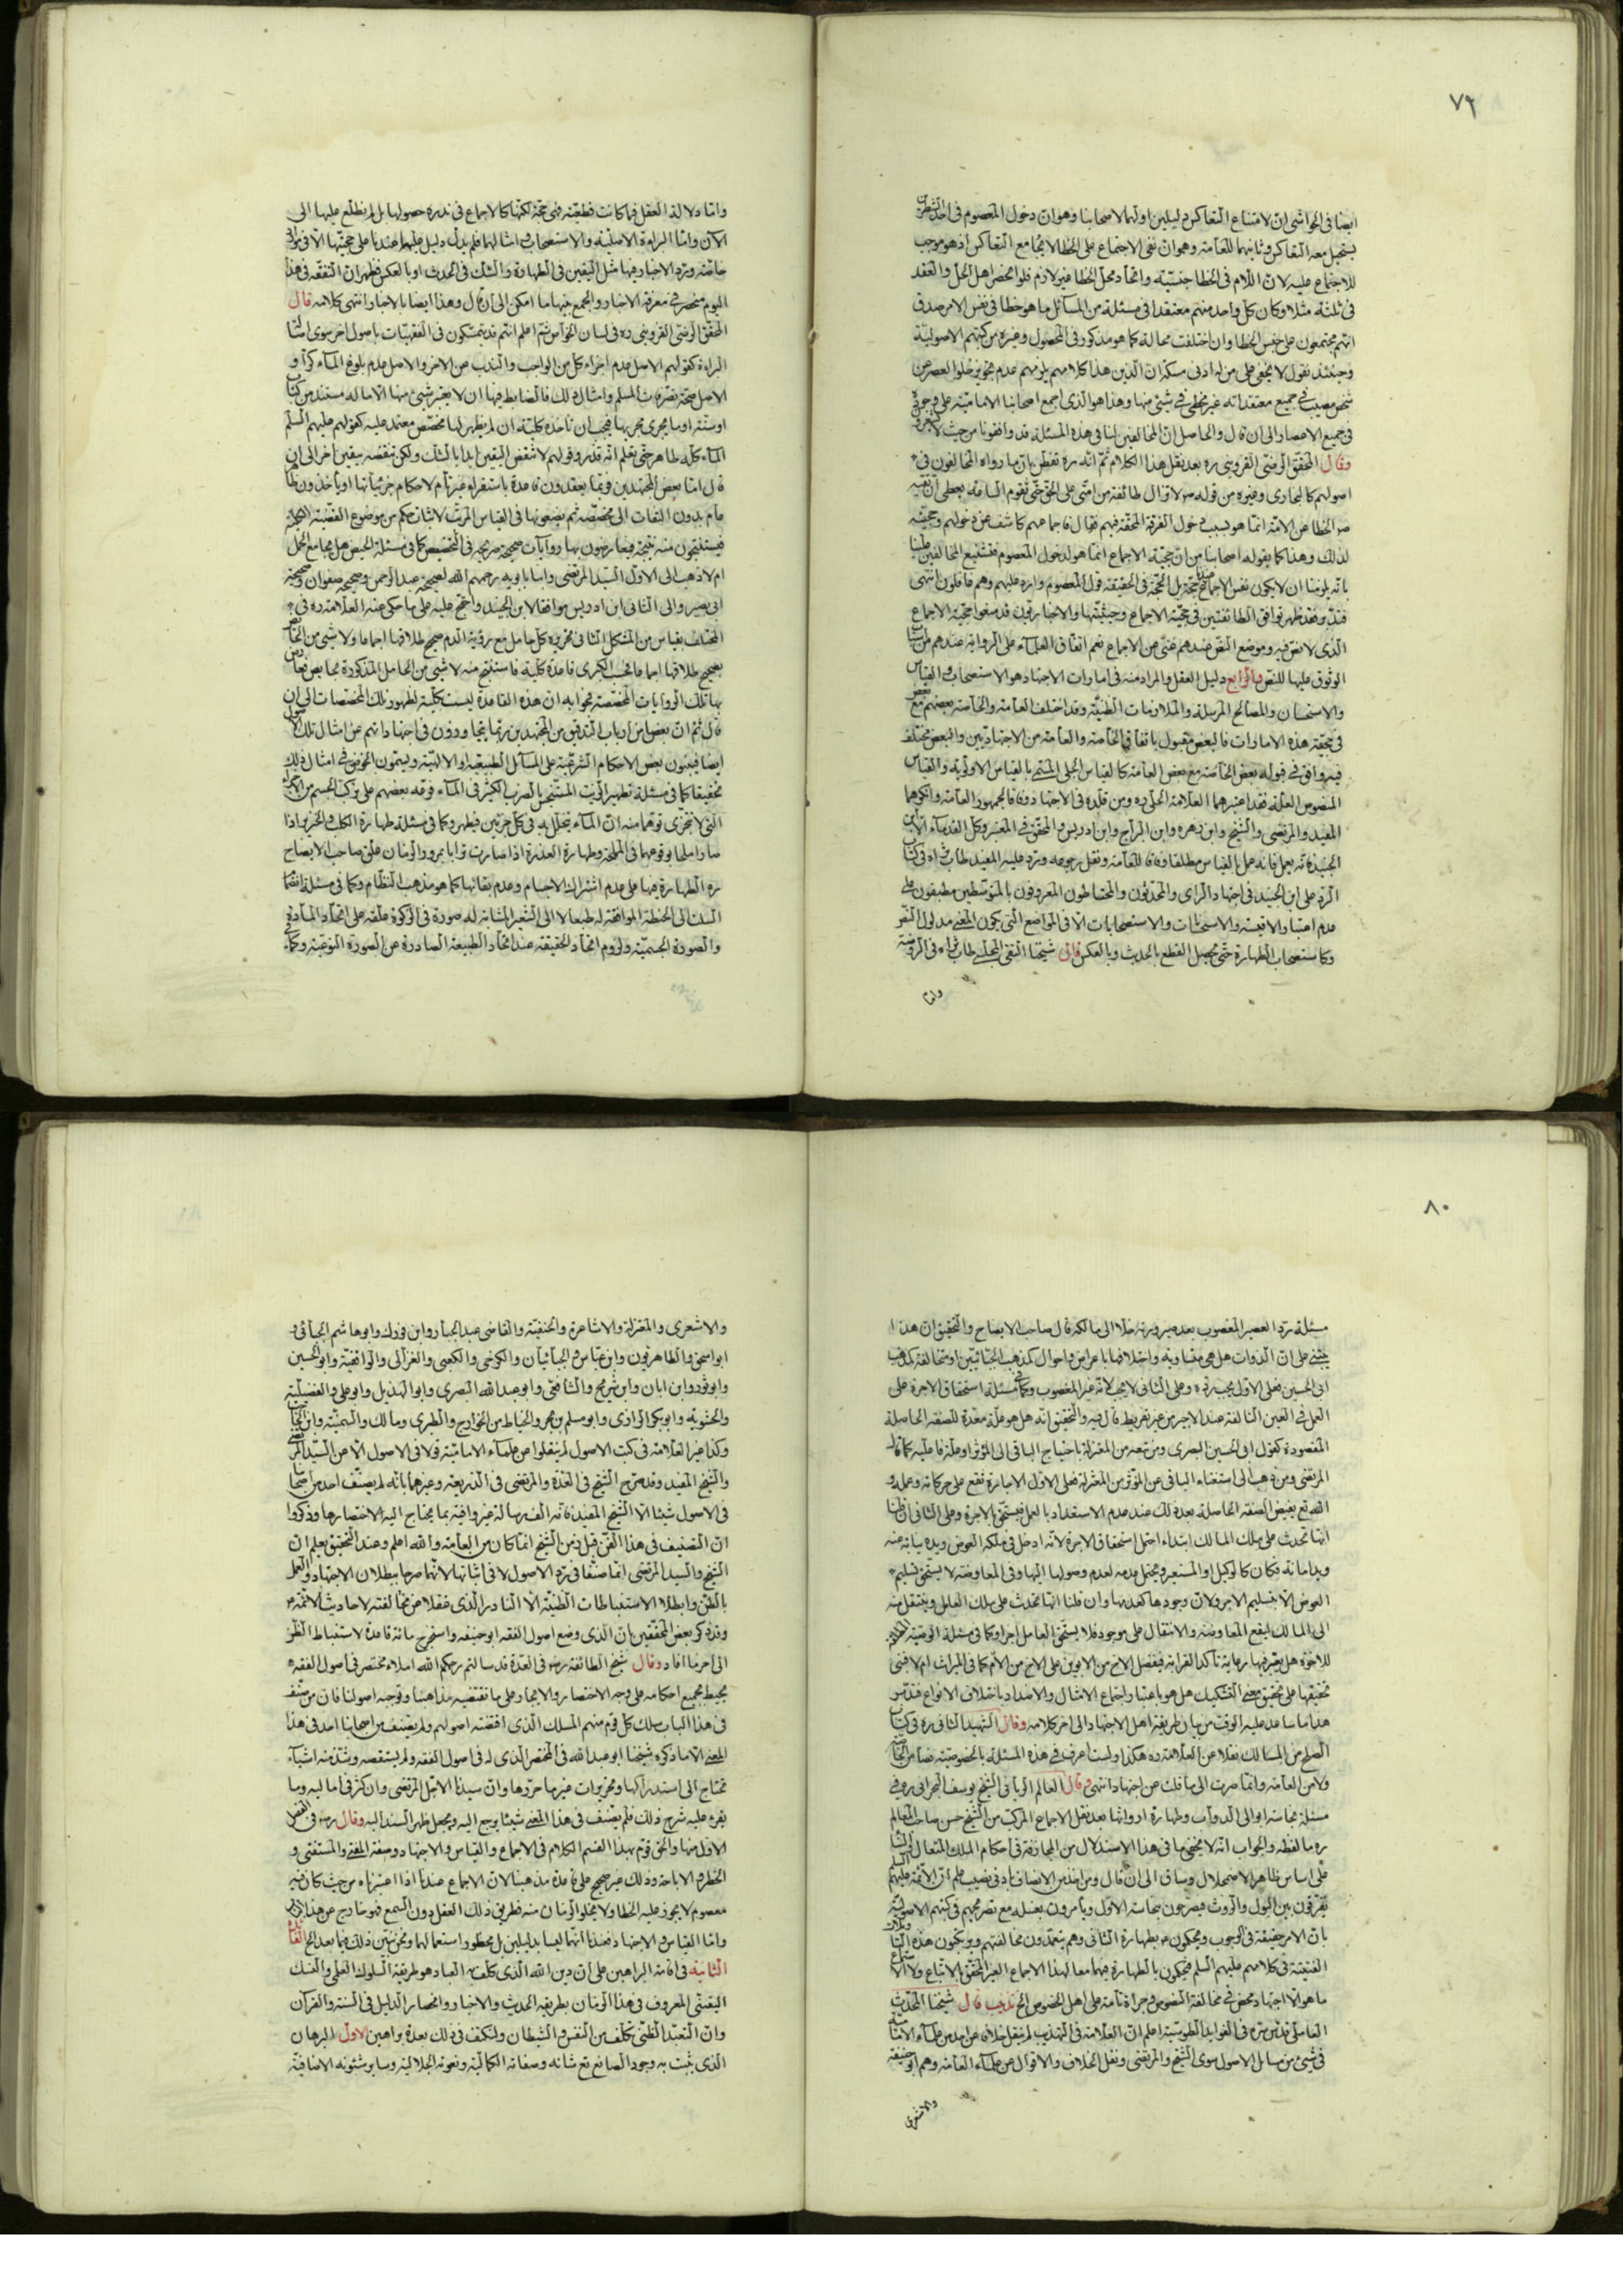 ٧٩
ايضا فى الحواشى ان لامتناع التعاكس دليلين اولهما لاصحابنا وهو ان دخول المعصوم فى احد الشطرين
يستحيل معه التعاكس وثانيهما للعامة وهو ان نفى الاجتماع على الخطا لا يجامع التعاكس اذ هو موجب
للاجتماع عليه لان اللام فى الخطا جنسية واتحاد محل الخطا غير لازم فلو انحصر اهل الحل والعقد
فى ثلثة مثلا وكان كل واحد منهم معتقدا فى مسئلة من المسائل ما هو خطا فى نفس الامر صدق
انهم مجتمعون على جنس الخطا وان اختلفت محاله كما هو مذكور فى المحصول وغيره من كتبهم الاصولية
وحينئذ نقول لا يخفى على من له ادنى مسكة ان الذين هذا كلامهم يلزمهم عدم تجويز خلو العصر عن
شخص مصيب فى جميع معتقداته غير مخطئ فى شئ منها وهذا هو الذى اجمع اصحابنا الامامية على وجوده
فى جميع الاعصار الى ان قال والحاصل ان المخالفين لنا فى هذه المسئلة قد وافقونا من حيث لا
وقال المحقق الرضى القزوينى ره بعد نقل هذا الكلام ثم انه ره تفطن بان ما رواه المخالفون فى
اصولهم كالبخارى وغيره من قوله ص لا تزال طائفة من امتى على الحق حتى تقوم الساعة يعطى ان نفيه
ص الخطا عن الامة انما هو بسبب دخول الفرقة المحقة فيهم فقال فاجماعهم كاشف عن دخولهم وحجيته
لذلك وهذا كما يقوله اصحابنا من ان حجية الاجماع انما هو لدخول المعصوم فتشنيع المخالفين علينا
بانه يلزمنا ان لا يكون نفس الاجماع حجة بل الحجة فى الحقيقة قول المعصوم وارد عليهم وهم غافلون انتهى
فقد ظهر توافق الطائفتين فى حجية الاجماع وحيثيتها والاخباريون قد منعوا حجية الاجماع
الذى لا نص فيه وموضع النص عندهم غنى عن الاجماع نعم اتفاق العلماء على الرواية عندهم من
الوثوق عليها للنص والرابع دليل العقل والمراد منه فى امارات الاجتهاد هو الاستصحاب والقياس
والاستحسان والمصالح المرسلة والملازمات الظنية وقد اختلف العامة والخاصة بعضهم مع بعض
فى حجية هذه الامارات فالبعض مقبول باتفاق الخاصة والعامة من الاجتهاديين والبعض مختلف
فيه وافق فى قوله بعض الخاصة مع بعض العامة كالقياس الجلى المسمى بالقياس الاولوية والقياس
المنصوص العلة فقد اعتبرهما العلامة الحلى ره ومن قلده فى الاجتهاد وفاقا لجمهور العامة وانكرهما
المفيد والمرتضى والشيخ وابن زهره وابن البراج وابن ادريس والمحقق فى المعتبر وكل القدماء الا ابن
الجنيد فانه يعمل بالقياس مطلقا وفاقا للعامة ونقل رجوعه ورد عليه المفيد طاب ثراه فى كتاب
الرد على ابن الجنيد فى اجتهاد الراى والمحدثون والمحتاطون المعروفون بالمتوسطين مطبقون على
عدم اعتبار الاقيسة والاستحسانات والاستصحابات الا فى المواضع التى يكون المعنى مدلول النص
وكاستصحاب الطهارة حتى يحصل القطع بالحدث وبالعكس قال شيخنا التقى المجلسى طاب ثراه فى الروضة
واما
واما دلالة العقل فما كانت قطعية فهى حجة لكنها كالاجماع فى ندرة حصولها بل لم نطلع عليها الى
الآن واما البراءة الاصلية والاستصحاب وامثالهما فلم يدل دليل عليهما عندنا على حجيتها الا فى مواضع
خاصة ورد الاخبار فيها مثل اليقين فى الطهارة والشك فى الحدث او بالعكس فظهر ان التفقه فى هذا
اليوم منحصر فى معرفة الاخبار والجمع بينها ما امكن الى ان قال وهذا ايضا بالاخبار انتهى كلامه قال
المحقق الرضى القزوينى ره فى لسان الخواص ثم اعلم انهم قد يتمسكون فى الفقهيات باصول اخر سوى اصالة
البراءة كقولهم الاصل عدم اجزاء كل من الواجب والندب عن الاخر والاصل عدم بلوغ الماء كرا و
الاصل صحة تصرفات المسلم وامثال ذلك فالضابط فيها ان لا يعتبر شئ منها الا ما له مستند من كتاب
او سنة او ما يجرى مجريها فيجب ان ناخذه كلية ان لم يظهر لها مخصص معتمد عليه كقولهم عليهم السلم
الماء كله طاهر حتى تعلم انه قذر وقولهم لا تنقض اليقين ابدا بالشك ولكن تنقضه بيقين اخر الى ان
قال اما بعض المجتهدين فربما يعقدون قاعدة باستقراء غير تام لاحكام جزئياتها او ياخذون ظاهر
عام بدون التفات الى مخصصه ثم يضعونها فى القياس المرتب لاثبات حكم من موضوع القضية الكلية
فيستنتجون منه نتيجة فيعارضون بها روايات صحيحة صريحة فى التخصيص كما فى مسئلة الحيض هل يجامع الحمل
ام لا ذهب الى الاول السيد المرتضى وابنا بابويه رحمهم الله لصحيحة عبد الرحمن وصحيحة صفوان وصحيحة
ابى بصير والى الثانى ابن ادريس موافقا لابن الجنيد واحتج عليه على ما حكى عنه العلامة ره فى
المختلف بقياس من الشكل الثانى تحريره كل حامل مع رؤية الدم صحيح طلاقها اجماعا ولا شئ من الحائض
بصحيح طلاقها اجماعا فحسب الكبرى قاعدة كلية فاستنتج منه لا شئ من الحامل المذكورة بحائض فعارض
بها تلك الروايات المخصصة فجوابه ان هذه القاعدة ليست كلية لظهور تلك المخصصات الى ان
قال ثم ان بعض ارباب التدقيق من المجتهدين ربما يتجاوزون فى اجتهاداتهم عن امثال تلك الاصول
ايضا فيبنون بعض الاحكام الشرعية على المسائل الطبيعية والالهية ويسمون الخوض فى امثال ذلك
تحقيقا كما فى مسئلة تطهير الزيت المستنجس بالضرب الكثير فى الماء فرقه بعضهم على تركب الجسم من الاجزاء
التى لا تتجزى توهما منه ان الماء يتخلل به فى كل جزئين فيطهر وكما فى مسئلة طهارة الكلب والخنزير اذا
صارا ملحا بوقوعهما فى المملحة وطهارة العذرة اذا صارت ترابا بمرور الزمان علق صاحب الايضاح
ره الطهارة فيها على عدم اشتراك الاجسام وعدم بقائها كما هو مذهب النظام وكما فى مسئلة انضمام
السلت الى الحنطة الموافقة له طبعا لا الى الشعير المشابه له صورة فى الزكوة علقه على اتحاد المادة
والصورة الجسمية ولزوم اتحاد الحقيقة عند اتحاد الطبيعة الصادرة عن الصورة النوعية وكما
٨٠
مسئلة رد العصير المغصوب بعد صيرورته خلا الى مالكه قال صاحب الايضاح والتحقيق ان هذا
يبتنى على ان الذوات هل هى متساوية واختلافها باعراض واحوال كمذهب الجبائيين او متخالفة كمذهب
ابى الحسين فعلى الاول يجب رده وعلى الثانى لا يجب لانه غير المغصوب وكما فى مسئلة استحقاق الاجرة على
العمل فى العين التالفة عند الاجير من غير تفريط قال فيه والتحقيق انه هل هو علة معدة للصفة الحاصلة
المقصودة كقول ابى الحسين البصرى ومن تبعه من المعتزلة باحتياج الباقى الى المؤثر او علة فاعلية كما قال
المرتضى ومن ذهب الى استغناء الباقى عن المؤثر من المعتزلة فعلى الاول الاجارة تقع على حركاته وعمله و
الصانع يفيض الصفة الحاصلة بعد ذلك عند عدم الاستعداد بالعمل فيستحق الاجرة وعلى الثانى ان قلنا
انها تحدث على ملك المالك ابتداء احتمل استحقاق الاجرة لانه ادخل فى ملكه العوض ويده نيابة عنه
ويد امانة فكان كالوكيل او المستعير ويحتمل عدمه لعدم وصولها اليها وفى المعاوضة لا يستحق تسليم
العوض الا بتسليم الاخر ولان وجودها كعدمها وان قلنا انها تحدث على ملك العامل وينتقل منه
الى المالك ليقع المعاوضة والانتقال على موجود فلا يستحق العامل اجرا وكما فى مسئلة الوصية
للاخوة هل يعتبر فيها رعاية تاكد القرابة فيفضل الاخ من الابوين على الاخ من الام كما فى الميراث ام لا فبنى
تحقيقها على تحقيق معنى التشكيك هل هو باعتبار اجتماع الامثال والاضداد باختلاف الانواع فتدبر
هذا ما ساعد عليه الوقت من بيان طريقة اهل الاجتهاد الى اخر كلامه وقال الشهيد الثانى ره فى كتاب
الصلح من المسالك نقلا عن العلامة ره هكذا ولست اعرف فى هذه المسئلة بالخصوصية نصا من الخاصة
ولا من العامة وانما صرت الى ما قلت عن اجتهاد انتهى وقال العالم الربانى الشيخ يوسف البحرانى ره فى
مسئلة نجاسة ابوال الدواب وطهارة ارواثها بعد نقل الاجماع المركب من الشيخ حسن صاحب المعالم
ره ما لفظه والجواب انه لا يخفى ما فى هذا الاستدلال من المجازفة فى احكام الملك المتعال
على اساس ظاهر الاضمحلال وساق الى ان قال ومن اخذ من الانصاف بادنى نصيب علم ان الائمة عليهم السلم
يفرقون بين البول والروث فيصرحون بنجاسة الاول ويأمرون بغسله مع تصريحهم فى كتبهم الاصولية
بان الامر حقيقة فى الوجوب ويحكمون بطهارة الثانى وهم يتعمدون مخالفتهم ويرتكبون هذه
الفتية فى كلامهم عليهم السلم فيحكمون بالطهارة فيهما معا لهذا الاجماع الغير المحقق الاتباع ولا
ما هو الا اجتهاد محض فى مخالفة النصوص وجراة تامة على اهل الخصوص الخ تذنيب قال شيخنا المحدث
العاملى قدس سره فى الفوايد الطوسية اعلم ان العلامة فى التهذيب لم ينقل خلاف عن احد من علماء الامامية
فى شئ من مسائل الاصول سوى الشيخ والمرتضى ونقل الخلاف والاقوال عن علماء العامة وهم ابو حنيفة
والاشعرى
والاشعرى والمعتزلة والاشاعرة والحنفية والقاضى عبد الجبار وابن فورك وابو هاشم الجبائى و
ابو اسحق والظاهريون وابن عباس والجبائيان والكرخى والكعبى والغزالى والواقفية وابو الحسين
وابو ثور وابن ابان وابن شريح والشافعى وابو عبد الله البصرى وابو الهذيل وابو على والفضيلية
والحشوية وابو بكر الرازى وابو مسلم بن بحر والخياط من الخوارج والطبرى ومالك والسمنية وابن
وكذا غير العلامة فى كتب الاصول لم ينقلوا عن علماء الامامية قولا فى الاصول الا عن السيد المرتضى
والشيخ المفيد وقد صرح الشيخ فى العدة والمرتضى فى الذريعة وغيرهما بانه لم يصنف احد من اصحابنا
فى الاصول شيئا الا الشيخ المفيد فانه الف رسالة غير وافية بما يحتاج اليه لاختصارها وذكروا
ان التصنيف فى هذا الفن قبل زمن الشيخ انما كان من العامة والله اعلم وعند التحقيق يعلم ان
الشيخ والسيد المرتضى انما صنفا فى رد الاصول لا فى اثباتها لانهما صرحا ببطلان الاجتهاد والعمل
بالظن وابطلا الاستنباطات الظنية الا النادر الذى غفلا عن مخالفته لاحاديث الائمة ع
وقد ذكر بعض المحققين بان الذى وضع اصول الفقه ابو حنيفه واستخرج مائة قاعدة لاستنباط النظر
الى اخر ما افاد وقال شيخ الطائفة رض فى العدة قد سالتم رحمكم الله املاء مختصر فى اصول الفقه
يحيط بجميع احكامه على وجه الاختصار والايجاز على ما تقتضيه مذاهبنا وتوجبه اصولنا فان من صنف
فى هذا الباب سلك كل قوم منهم المسلك الذى اقتضته اصولهم ولم يصنف من اصحابنا احد فى هذا
المعنى الا ما ذكره شيخنا ابو عبد الله فى المختصر الذى له فى اصول الفقه ولم يستقصه وشذ منه اشياء
تحتاج الى استدراكها وتحريرات غير ما حررها وان سيدنا الاجل المرتضى وان كثر فى اماليه وما
يقرء عليه شرح ذلك فلم يصنف فى هذا المعنى شيئا يرجع اليه ويجعل ظهرا يستند اليه وقال رض فى الفصل
الاول منها والحق قوم بهذا القسم الكلام فى الاجماع والقياس والاجتهاد وصفة المفتى والمستفتى و
الحظر والاباحة وذلك غير صحيح على قاعدة مذهبنا لان الاجماع عندنا اذا اعتبرناه من حيث كان فيه
معصوم لا يجوز عليه الخطا ولا يخلو الزمان منه فطريق ذلك العقل دون السمع فهو خارج عن هذا الباب
واما القياس والاجتهاد فعندنا انهما ليسا بدليلين بل محظور استعمالهما ونحن نبين ذلك فيما بعد الخ الفائدة
الثانية فى اقامة البراهين على ان دين الله الذى كلف به العباد هو طريقة السلوك العلمى والنسك
اليقينى المعروف فى هذا الزمان بطريقة الحديث والاخبار وانحصار الدليل فى السنة والقرآن
وان التعبد الظنى تكلف من النفس والشيطان ولنكتف فى ذلك بعدة براهين الاول البرهان
الذى يثبت به وجود الصانع تع شانه وصفاته الكمالية ونعوته الجلالية وساير شئونه الاضافية